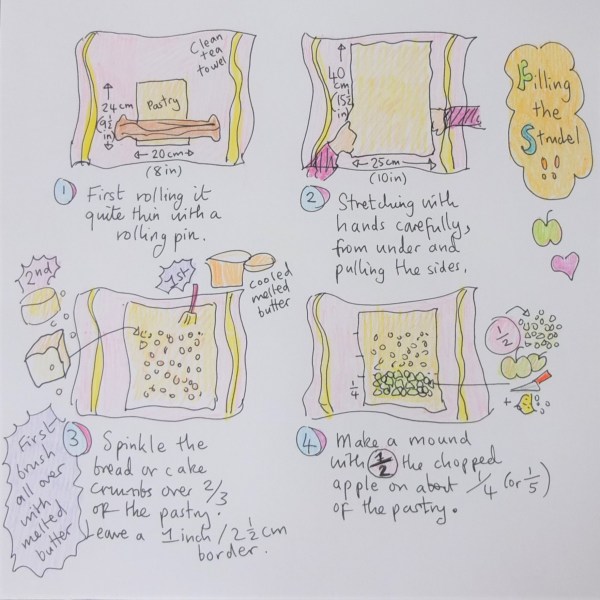 Clean
tea
towel
Pastry
24cm
(9½
in)
20cm
(8in)
1 First rolling it
quite thin with a
rolling pin.
40
cm
(15½
in)
25cm
(10in)
2 Stretching with
hands carefully,
from under and
pulling the sides.
Filling
the
Strudel
2nd
1st
cooled
melted
butter
First
brush
all over
with
melted
butter
3 Spinkle the
bread or cake
crumbs over 2/3
of the pastry.
Leave a 1inch/2½cm
border.
¼
½
+
4 Make a mound
with ½ the chopped
apple on about ¼ (or 1/5)
of the pastry.